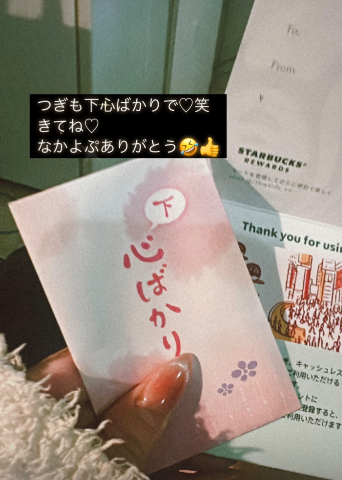 つぎも下心ばかりで♡笑
きてね♡
なかよぷありがとう🤣👍
To:
From
¥
STARBUCKS®
REWARDS
Thank you for usin
下
心ばかり
キャッシュレス
利用いただける
登録すると、
利用いただけます